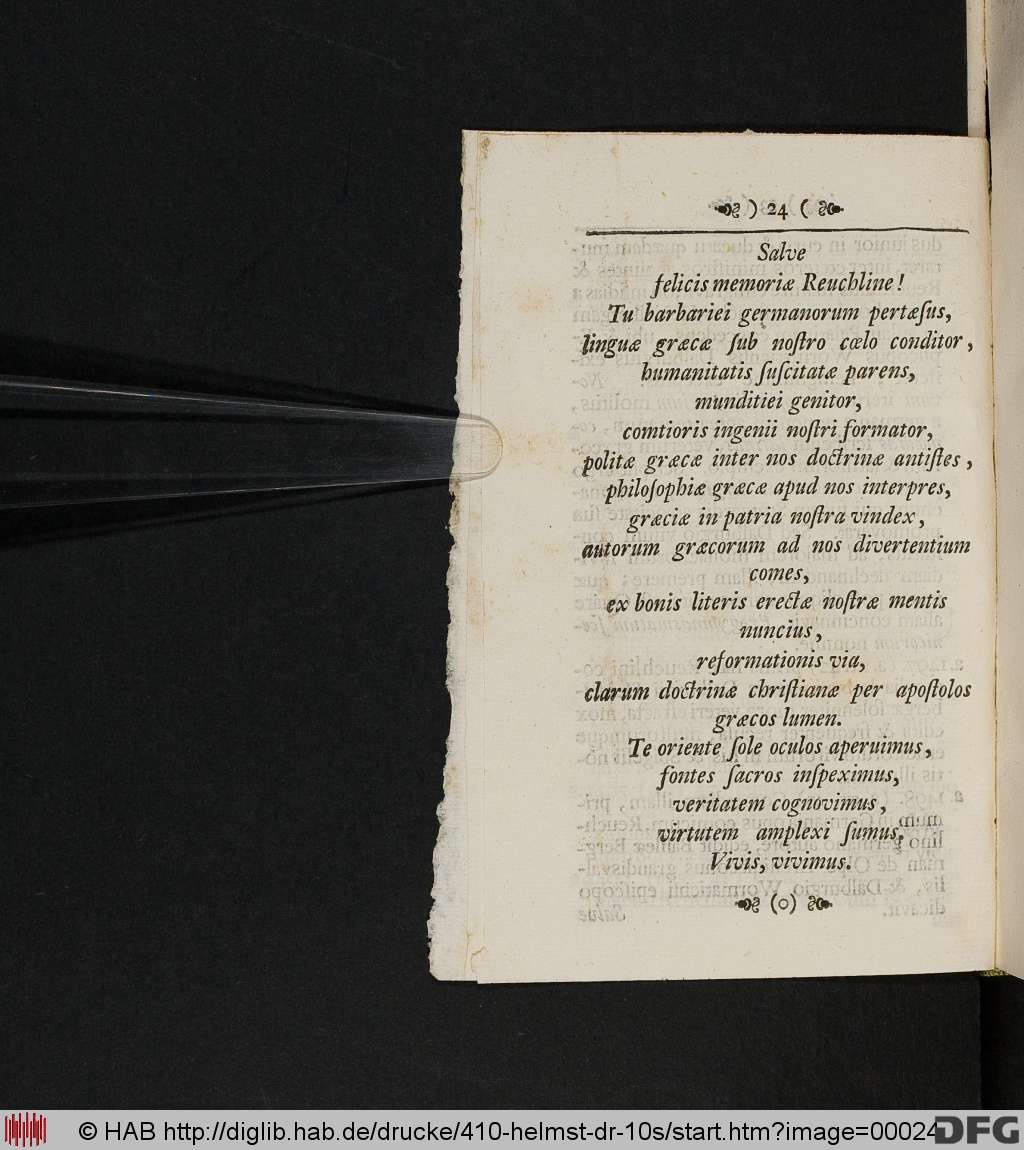 ) 24 (
Salve
felicis memoriæ Reuchline!
Tu barbariei germanorum pertæſus,
linguæ græcæ ſub noſtro cœlo conditor,
humanitatis ſuſcitatæ parens,
munditiei genitor,
comtioris ingenii noſtri formator,
politæ græcæ inter nos doctrinæ antiſtes,
philoſophiæ græcæ apud nos interpres,
græciæ in patria noſtra vindex,
autorum græcorum ad nos divertentium
comes,
ex bonis literis erectæ noſtræ mentis
nuncius,
reformationis via,
clarum doctrinæ chriſtianæ per apoſtolos
græcos lumen.
Te oriente ſole oculos aperuimus,
fontes ſacros inſpeximus,
veritatem cognovimus,
virtutem amplexi ſumus.
Vivis, vivimus.
(o)
© HAB http://diglib.hab.de/drucke/410-helmst-dr-10s/start.htm?image=00024
DFG